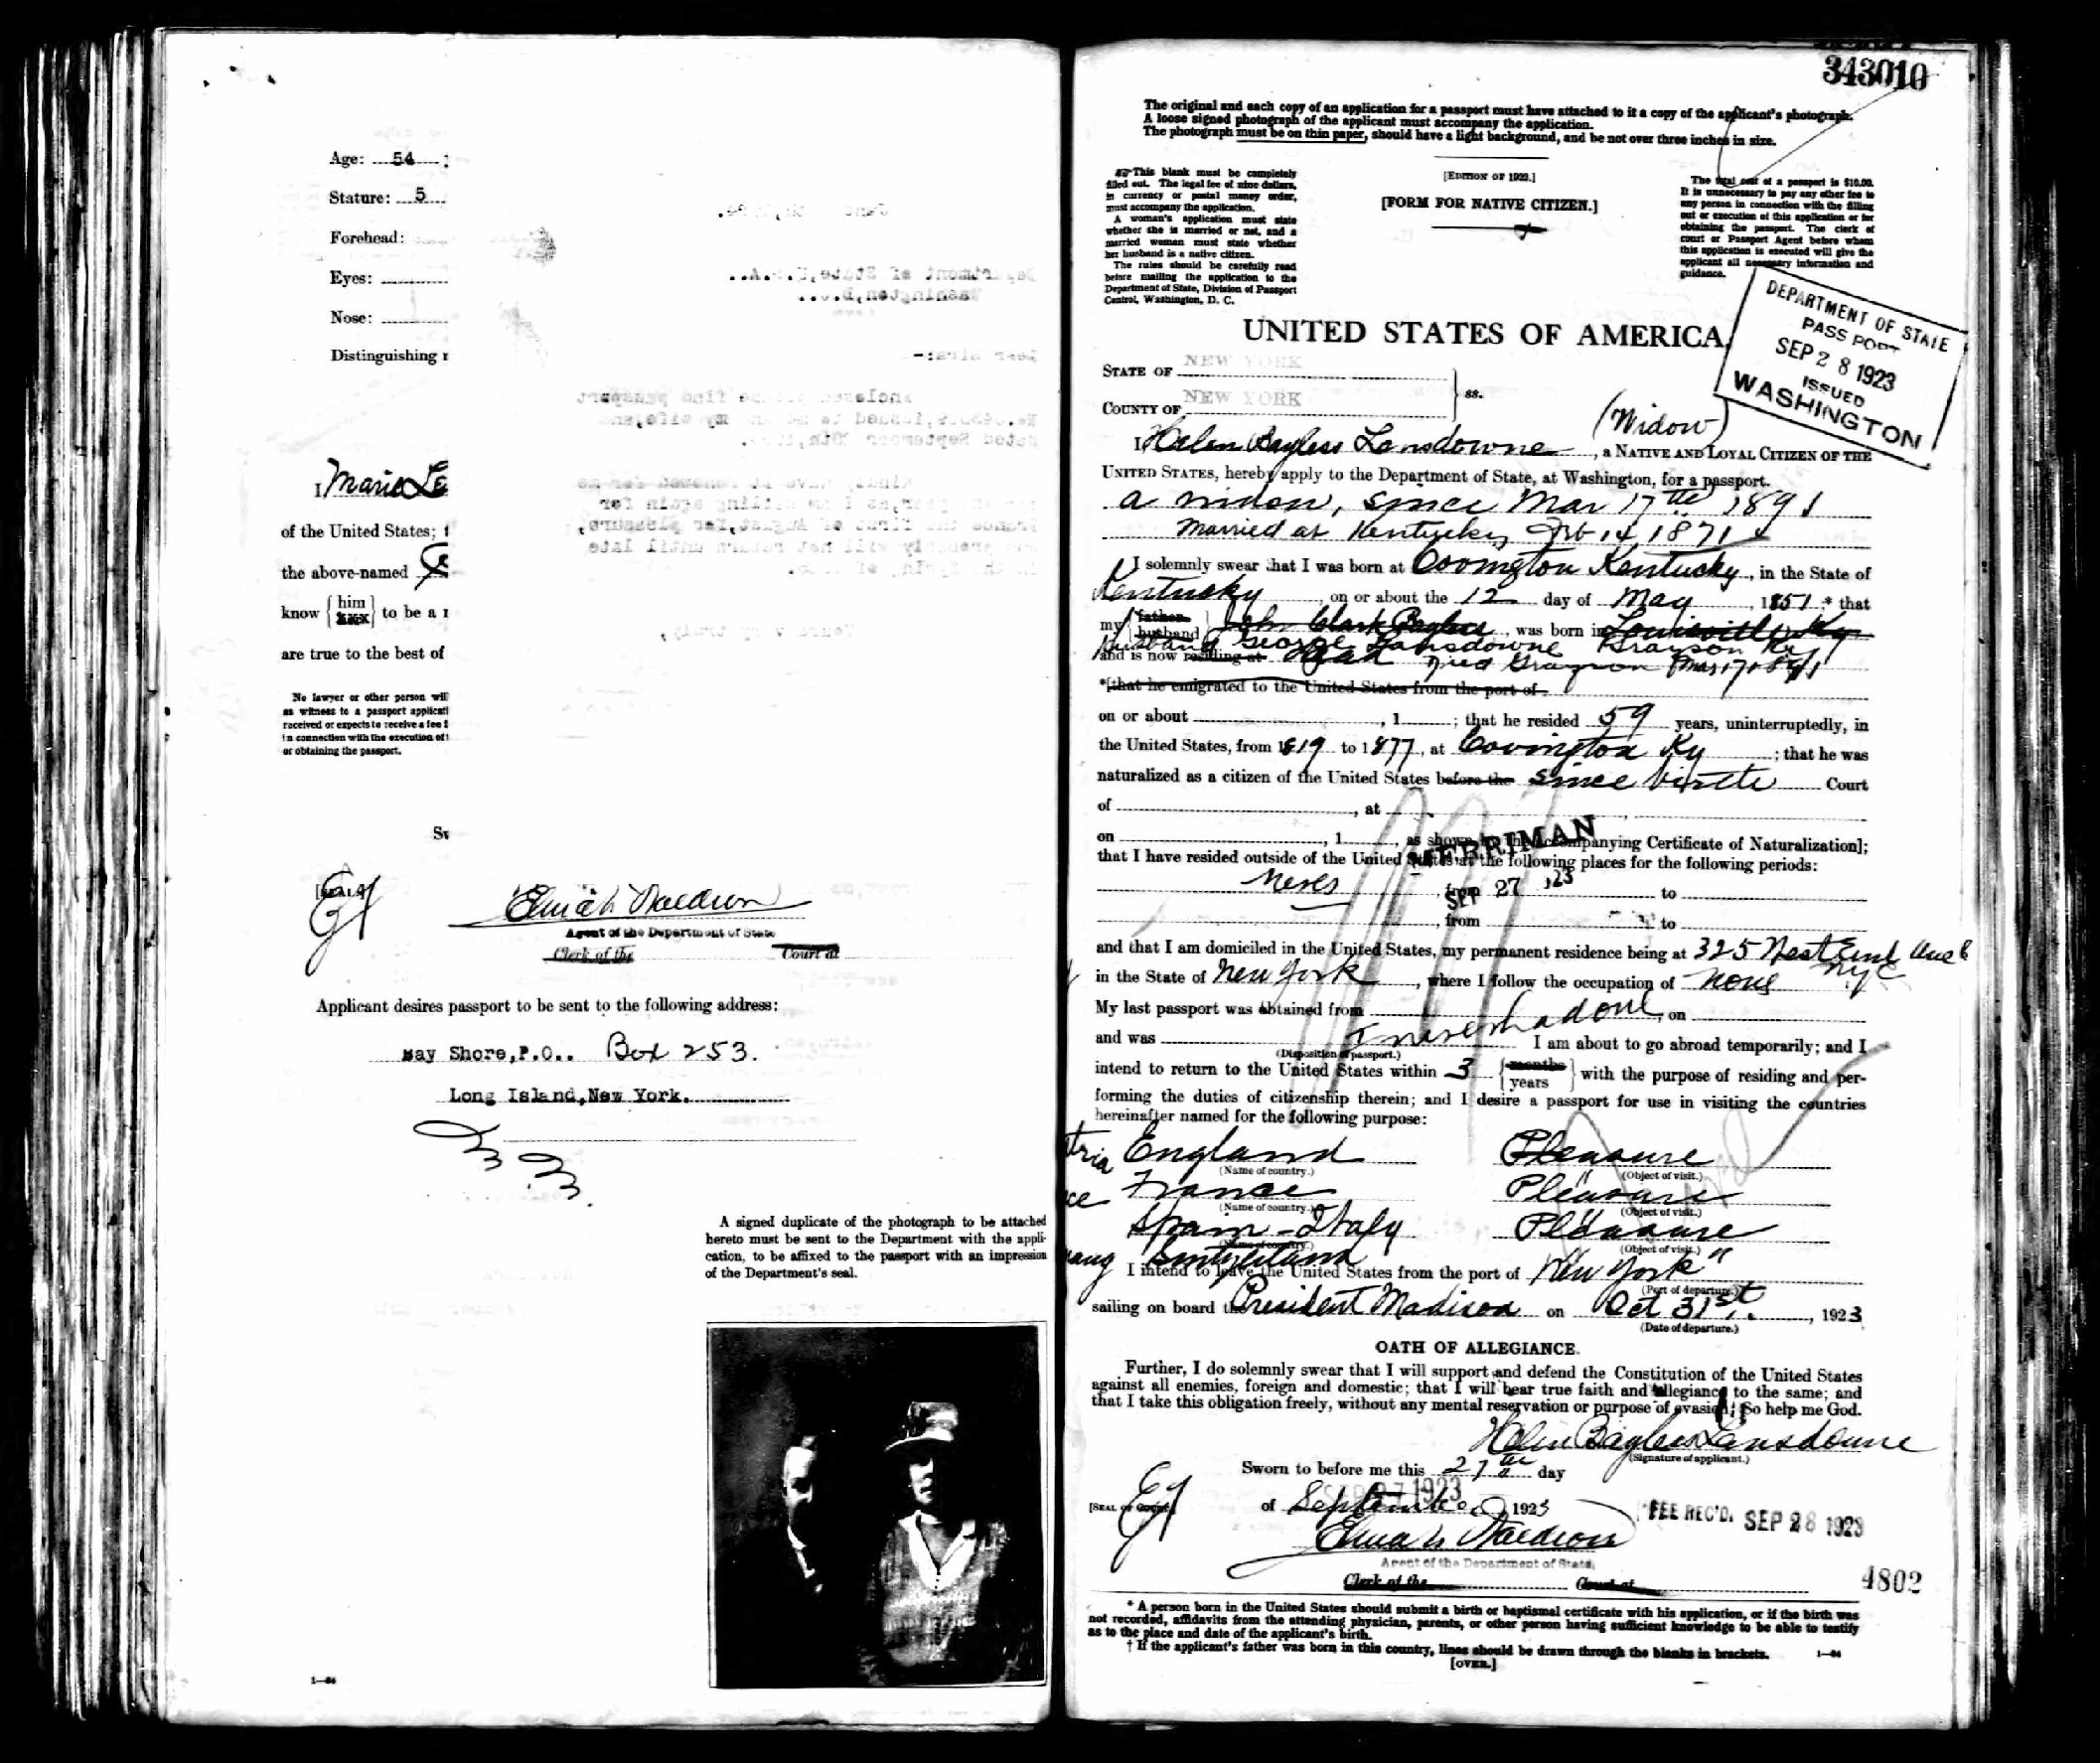 Age: 54
Stature: 5
Forehead:
Eyes:
Nose:
Distinguishing
I, Marie
of the United States;
the above-named
know { him } to be a
are true to the best of
No lawyer or other person will
as witness to a passport applicati
received or expects to receive a fee f
in connection with the execution of
or obtaining the passport.
[SEAL.]
Agent of the Department of State
Clerk of the Court at
Applicant desires passport to be sent to the following address:
Bay Shore, P.O.. Box 253.
Long Island, New York.
A signed duplicate of the photograph to be attached
hereto must be sent to the Department with the appli-
cation, to be affixed to the passport with an impression
of the Department's seal.
343010
The original and each copy of an application for a passport must have attached to it a copy of the applicant's photograph.
A loose signed photograph of the applicant must accompany the application.
The photograph must be on thin paper, should have a light background, and be not over three inches in size.
This blank must be completely
filled out. The legal fee of nine dollars,
in currency or postal money order,
must accompany the application.
A woman's application must state
whether she is married or not, and a
married woman must state whether
her husband is a native citizen.
The rules should be carefully read
before mailing the application to the
Department of State, Division of Passport
Control, Washington, D. C.
[EDITION OF 1922.]
[FORM FOR NATIVE CITIZEN.]
The total cost of a passport is $10.00.
It is unnecessary to pay any other fee to
any person in connection with the filling
out or execution of this application or for
obtaining the passport. The clerk of
court or Passport Agent before whom
this application is executed will give the
applicant all necessary information and
guidance.
DEPARTMENT OF STATE
PASSPORT
SEP 28 1923
ISSUED
WASHINGTON
UNITED STATES OF AMERICA,
STATE OF NEW YORK
COUNTY OF NEW YORK
ss.
(Widow)
I, Helen Bayless Lansdowne, a NATIVE AND LOYAL CITIZEN OF THE
UNITED STATES, hereby apply to the Department of State, at Washington, for a passport.
a widow, since Mar 17th 1891
Married at Kentucky Feb 14, 1871
I solemnly swear that I was born at Covington Kentucky, in the State of
Kentucky, on or about the 12 day of May, 1851;* that
my { father husband } John Clark Bayless, was born in Louisville Ky
Husband George Lansdowne Grayson Ky
and is now residing at Dead Died Grayson Mar 17, 1891
*[that he emigrated to the United States from the port of
on or about , 1 ; that he resided 59 years, uninterruptedly, in
the United States, from 1819 to 1877, at Covington Ky; that he was
naturalized as a citizen of the United States before the since birth Court
of , at
on , 1 , as shown by the accompanying Certificate of Naturalization];
MERRIMAN
that I have resided outside of the United States at the following places for the following periods:
from to
SEP 27 '23
from to
and that I am domiciled in the United States, my permanent residence being at 325 West End Ave
in the State of New York, where I follow the occupation of none NYC
My last passport was obtained from , on
and was I never had one I am about to go abroad temporarily; and I
(Disposition of passport.)
intend to return to the United States within 3 { months years } with the purpose of residing and per-
forming the duties of citizenship therein; and I desire a passport for use in visiting the countries
hereinafter named for the following purpose:
England Pleasure
(Name of country.) (Object of visit.)
France Pleasure
(Name of country.) (Object of visit.)
Spain - Italy Pleasure
(Name of country.) (Object of visit.)
Switzerland "
I intend to leave the United States from the port of New York
(Port of departure.)
sailing on board the President Madison on Oct 31st, 1923
(Date of departure.)
OATH OF ALLEGIANCE.
Further, I do solemnly swear that I will support and defend the Constitution of the United States
against all enemies, foreign and domestic; that I will bear true faith and allegiance to the same; and
that I take this obligation freely, without any mental reservation or purpose of evasion: So help me God.
Helen Bayless Lansdowne
(Signature of applicant.)
Sworn to before me this 27th day
SEP 27 1923
[SEAL OF COURT.] of September 1923
FEE REC'D. SEP 28 1923
Agent of the Department of State.
Clerk of the Court at
4802
* A person born in the United States should submit a birth or baptismal certificate with his application, or if the birth was
not recorded, affidavits from the attending physician, parents, or other person having sufficient knowledge to be able to testify
as to the place and date of the applicant's birth.
† If the applicant's father was born in this country, lines should be drawn through the blanks in brackets.
[OVER.]